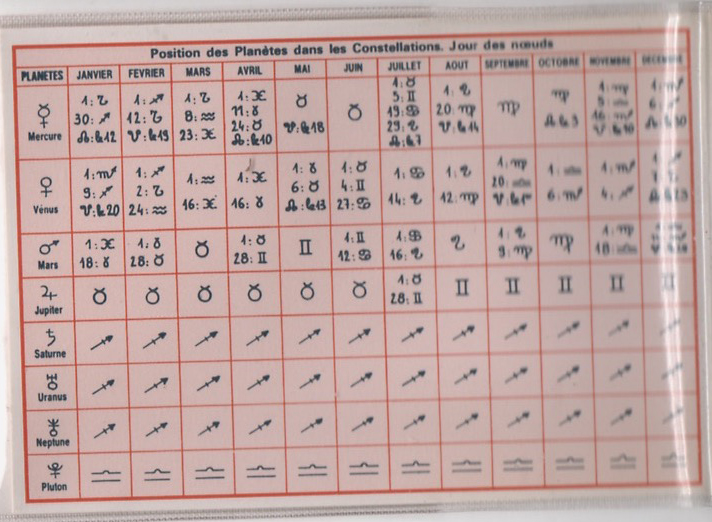 Position des Planètes dans les Constellations. Jour des nœuds
PLANETES JANVIER FEVRIER MARS AVRIL MAI JUIN JUILLET AOUT SEPTEMBRE OCTOBRE NOVEMBRE DECEMBRE
☿
Mercure
1: ♑
30: ♐
☊: le 12
1: ♐
12: ♑
☋: le 19
1: ♑
8: ♒
23: ♓
1: ♓
11: ♈
24: ♉
☊: le 10
♉
☋: le 18
♉
1: ♉
5: ♊
19: ♋
29: ♌
☊: le 7
1: ♌
20: ♍
☋: le 14
♍
♍
☊ le 3
1: ♍
♀
Vénus
1: ♏
9: ♐
☋: le 20
1: ♐
2: ♑
24: ♒
1: ♒
16: ♓
1: ♓
16: ♈
1: ♈
6: ♉
☊: le 13
1: ♉
4: ♊
27: ♋
1: ♋
14: ♌
1: ♌
12: ♍
1: ♍
20: ♎
1: ♎
6: ♏
1: ♏
4: ♐
♂
Mars
1: ♓
18: ♈
1: ♈
28: ♉
♉
1: ♉
28: ♊
♊
1: ♊
12: ♋
1: ♋
16: ♌
♌
1: ♌
9: ♍
♍
1: ♍
18: ♎
♃
Jupiter
♉ ♉ ♉ ♉ ♉ ♉
1: ♉
28: ♊
♊ ♊ ♊ ♊ ♊
♄
Saturne
♐ ♐ ♐ ♐ ♐ ♐ ♐ ♐ ♐ ♐ ♐ ♐
♅
Uranus
♐ ♐ ♐ ♐ ♐ ♐ ♐ ♐ ♐ ♐ ♐ ♐
♆
Neptune
♐ ♐ ♐ ♐ ♐ ♐ ♐ ♐ ♐ ♐ ♐ ♐
Pluton
♎ ♎ ♎ ♎ ♎ ♎ ♎ ♎ ♎ ♎ ♎ ♎